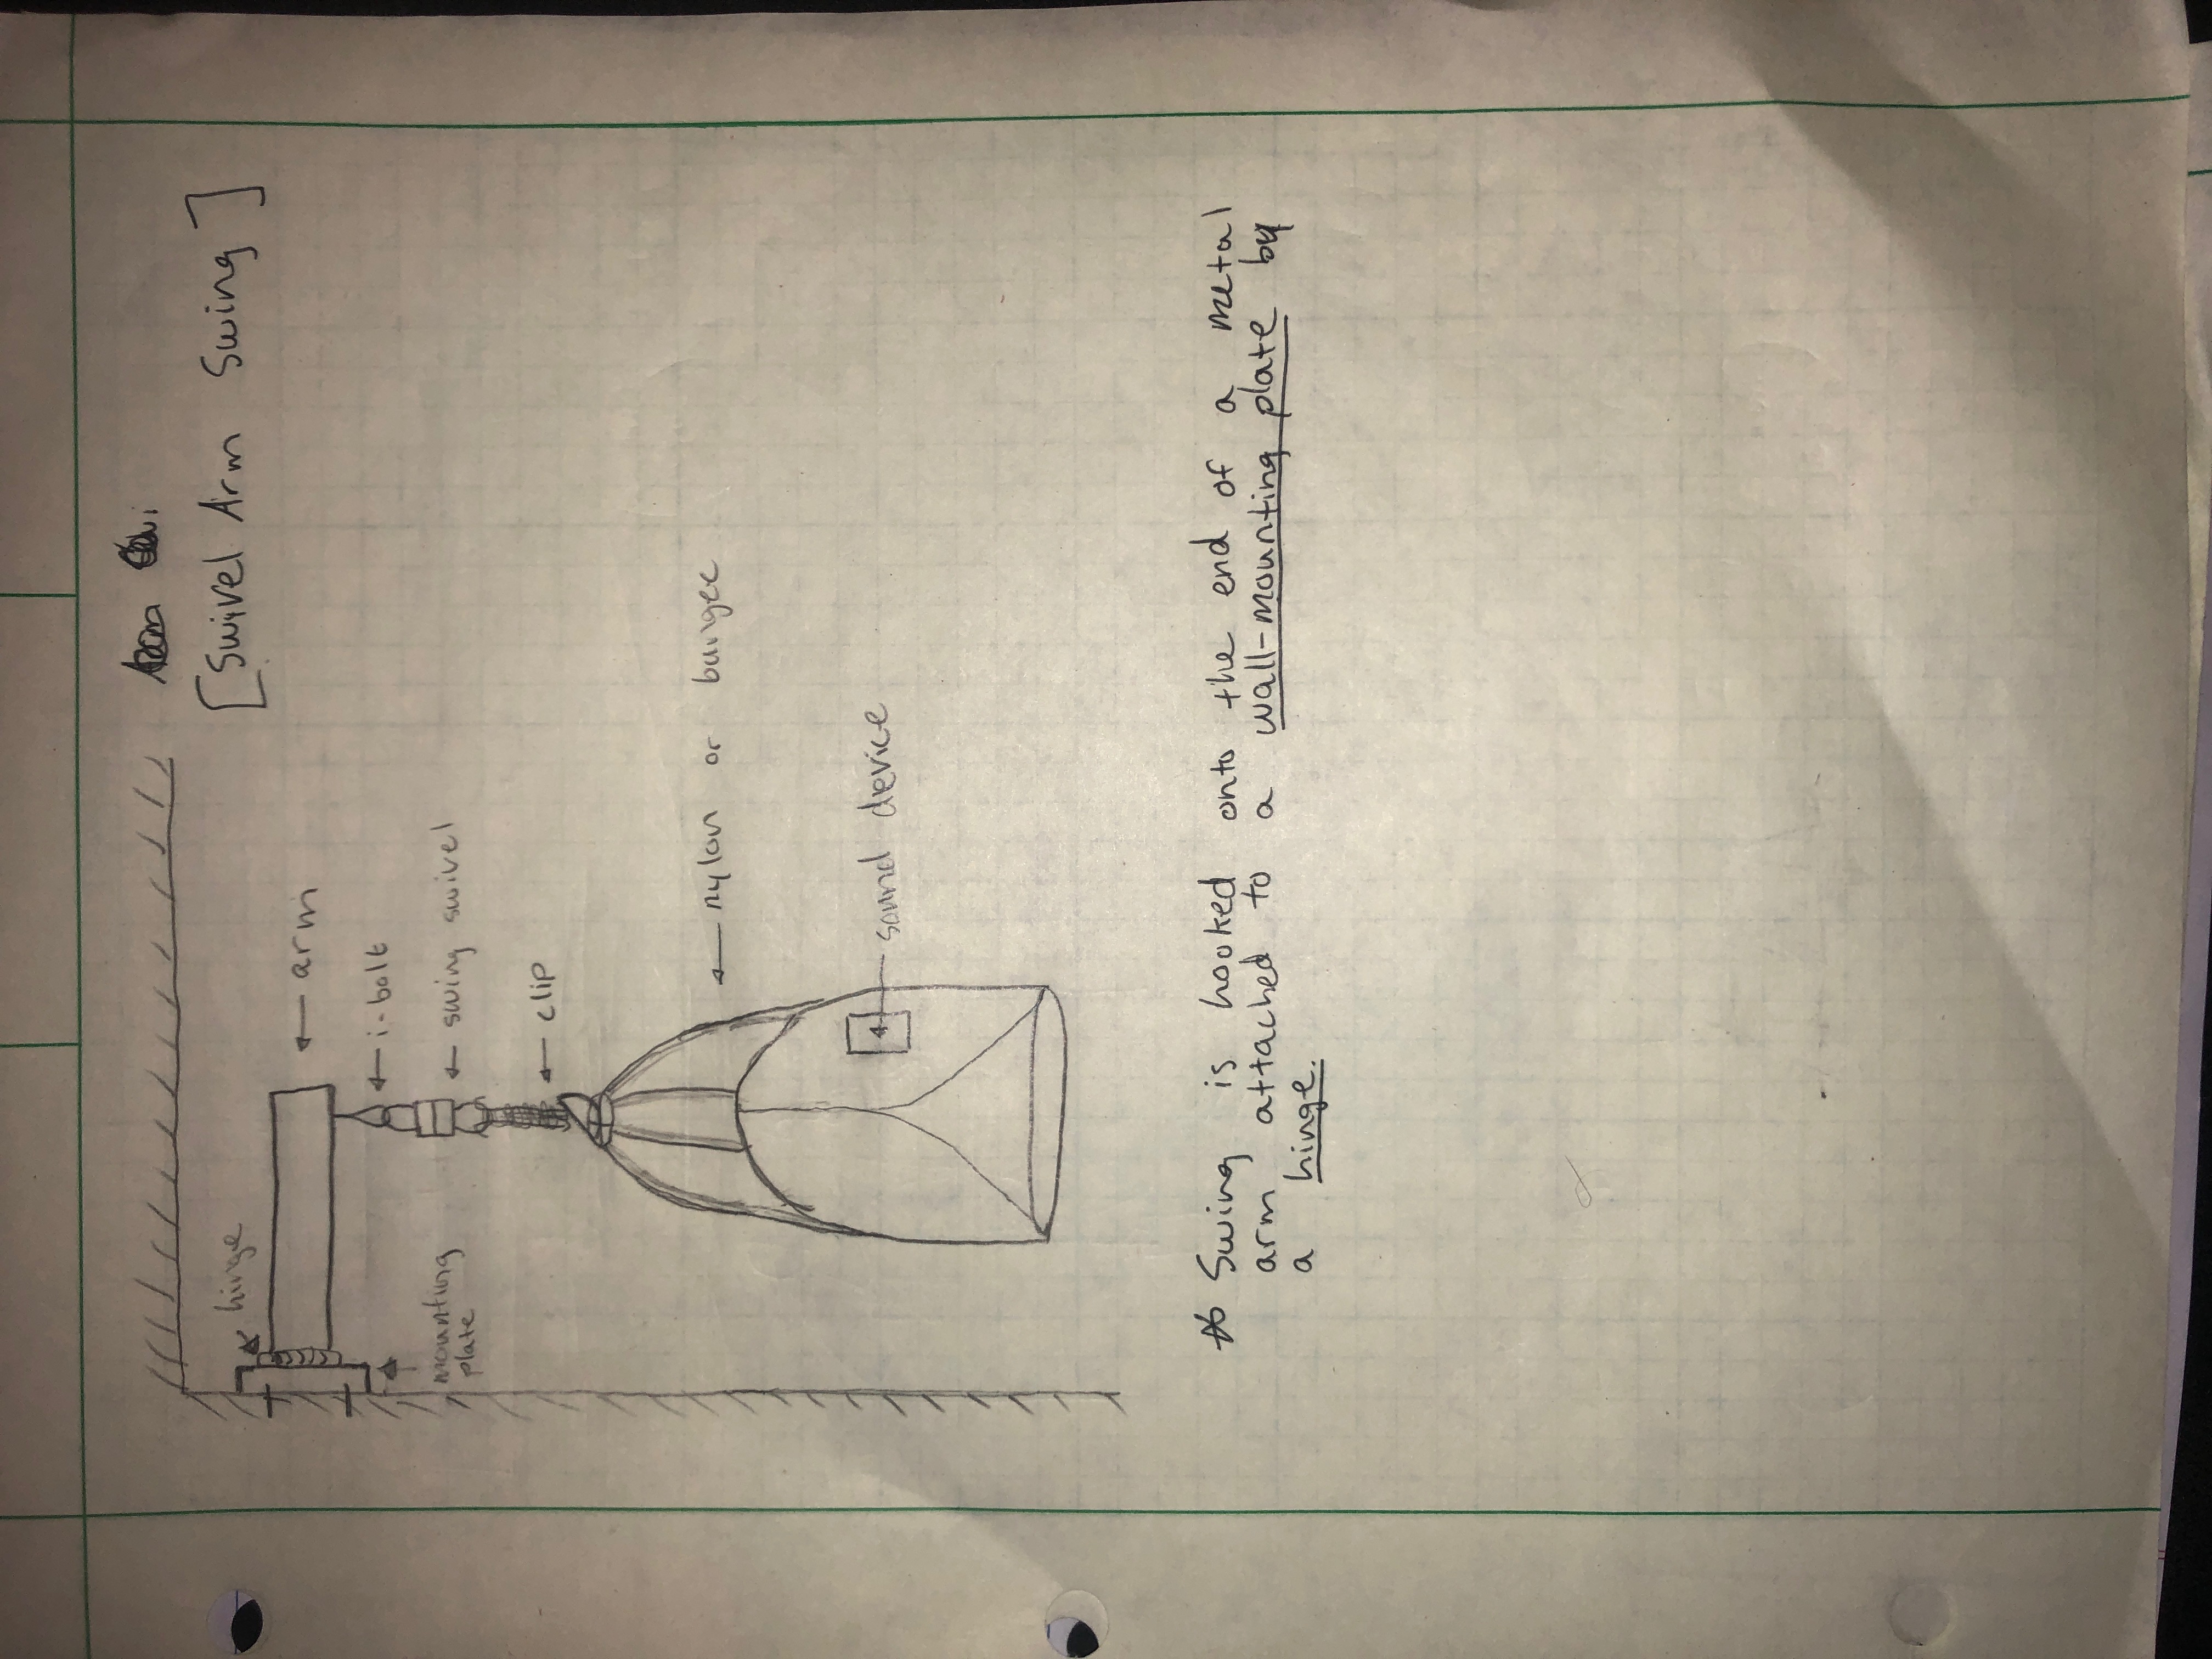 [Swivel Arm Swing]
hinge
arm
i-bolt
mounting
plate
swing swivel
clip
nylon or bungee
sound device
* Swing is hooked onto the end of a metal
arm attached to a wall-mounting plate by
a hinge.